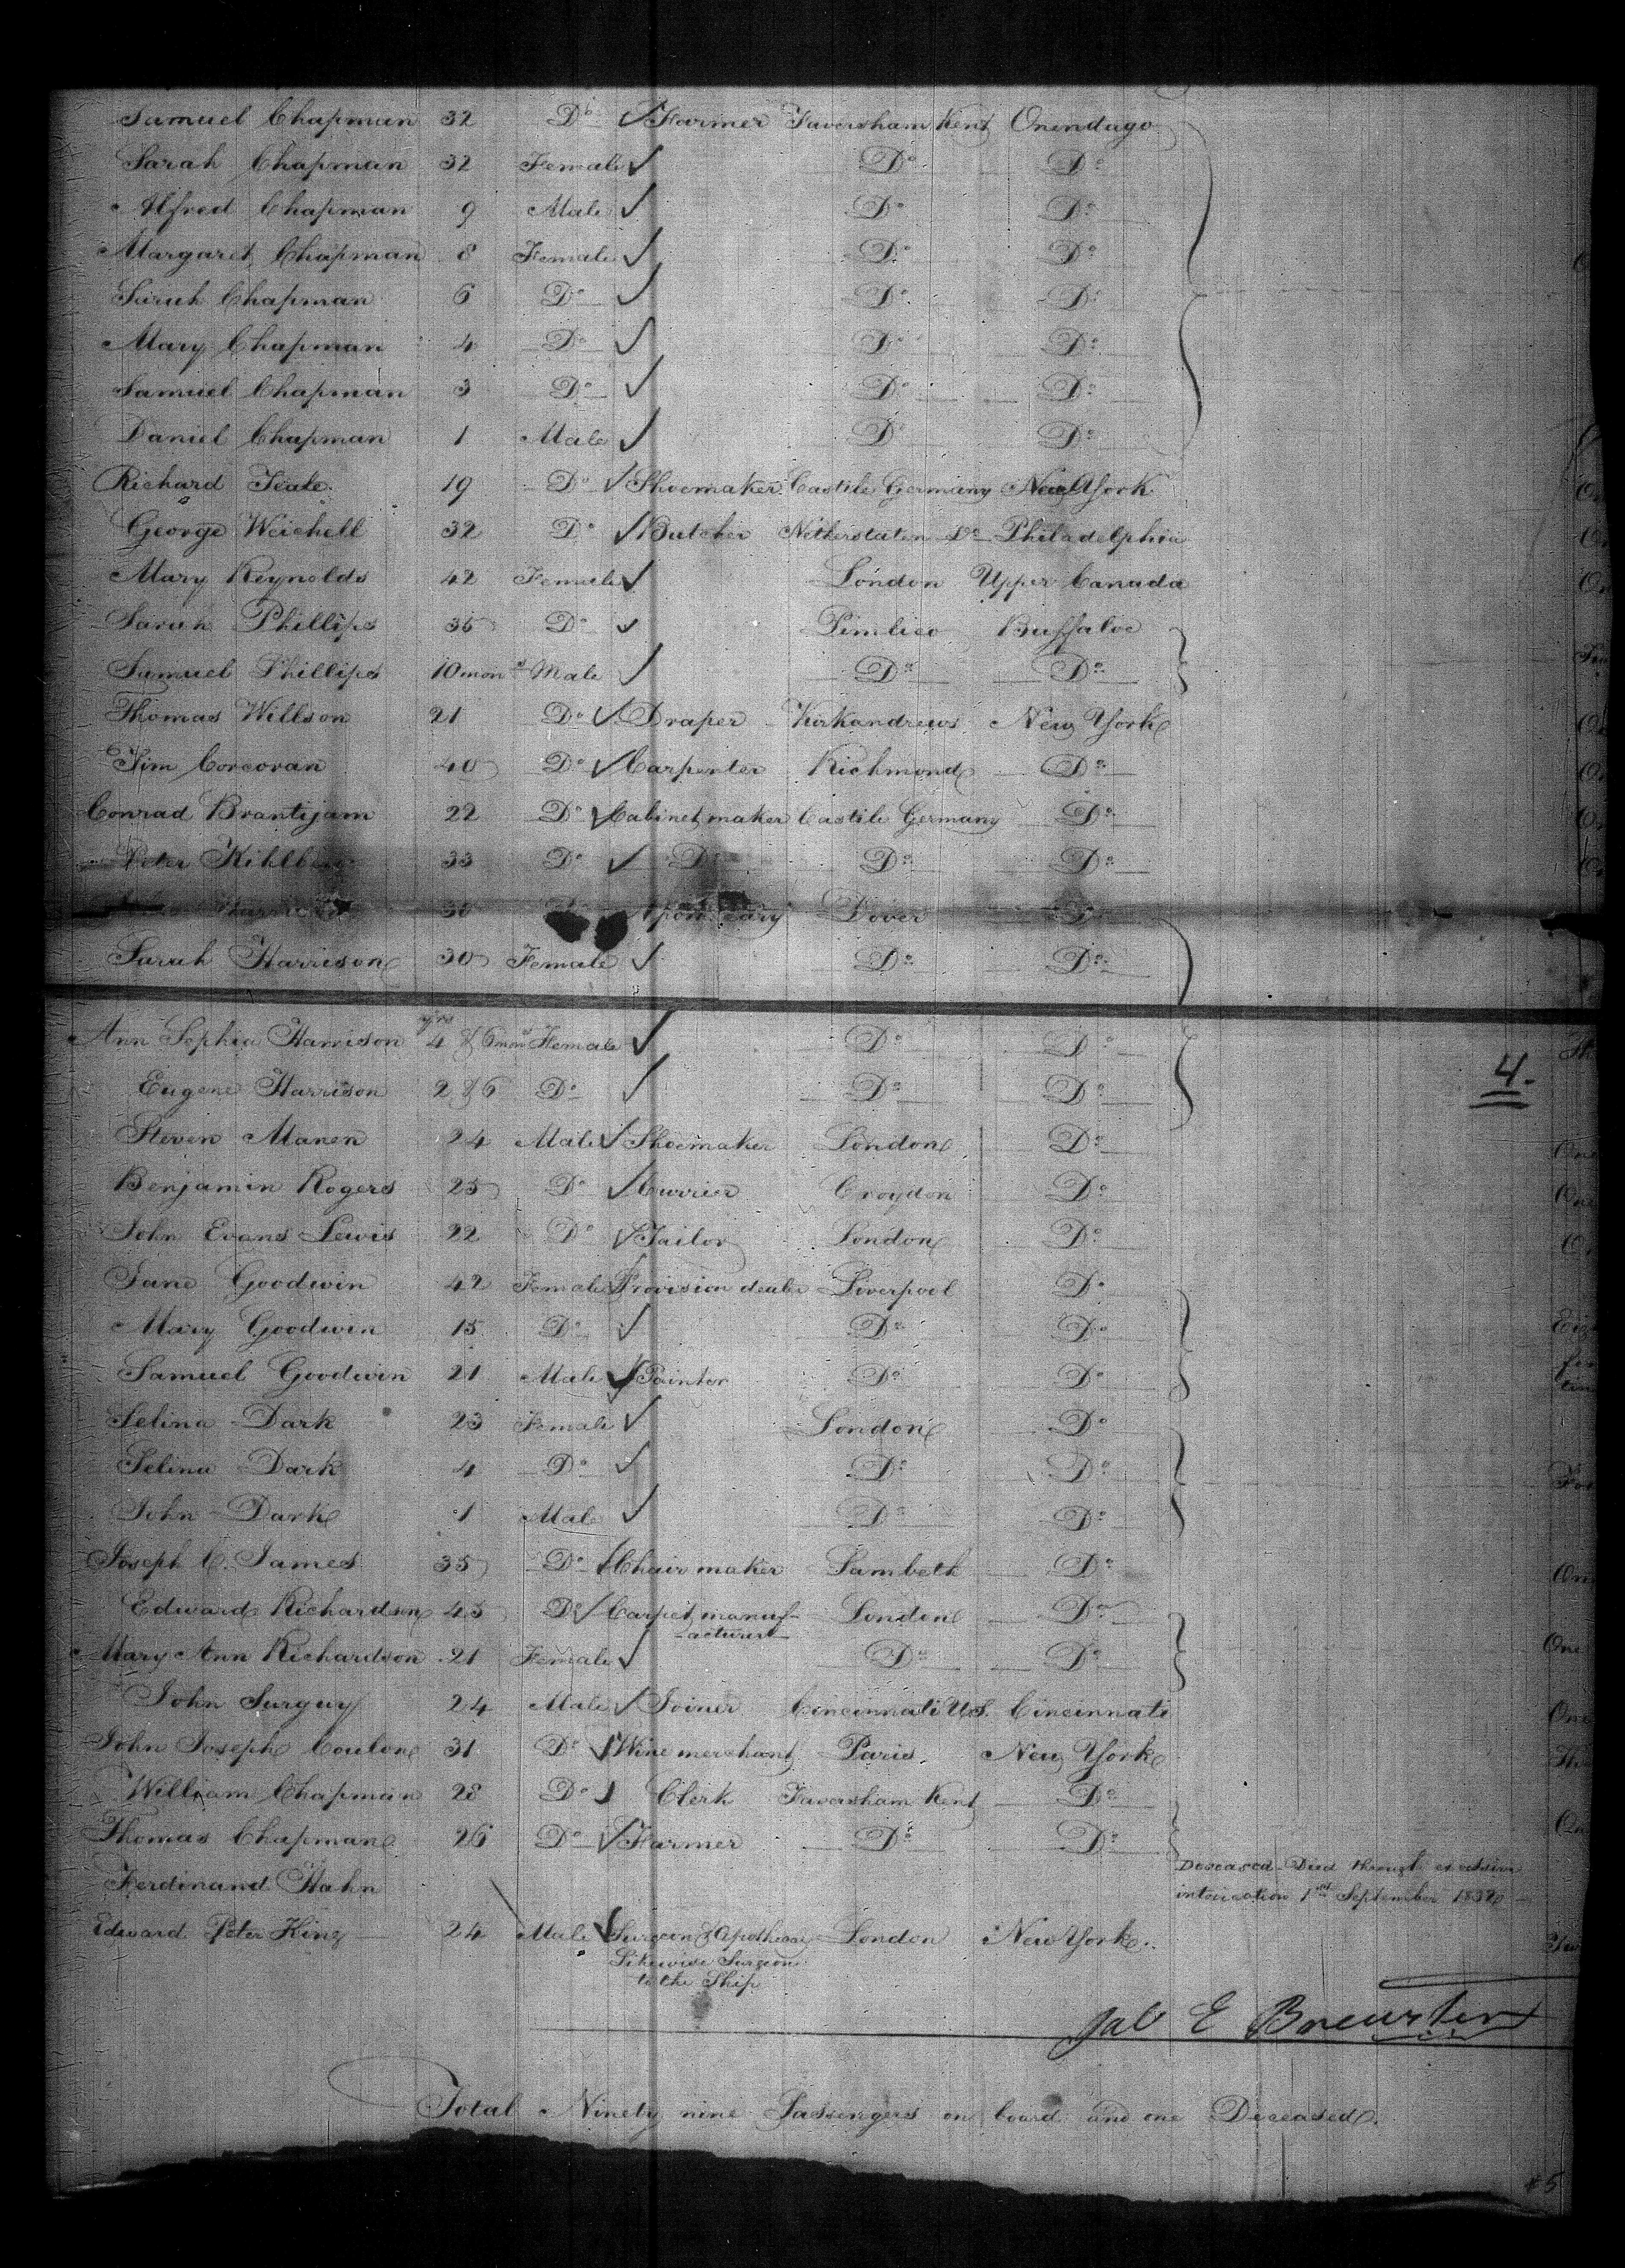 Samuel Chapman 32 Do Farmer Faversham Kent Onendago
Sarah Chapman 32 Female Do Do
Alfred Chapman 9 Male Do Do
Margaret Chapman 8 Female Do Do
Sarah Chapman 6 Do Do Do
Mary Chapman 4 Do Do Do
Samuel Chapman 3 Do Do Do
Daniel Chapman 1 Male Do Do
Richard 19 Do Shoemaker Castile Germany New York
George Weichell 32 Do Butcher Netherstaten Do Philadelphia
Mary Reynolds 42 Female London Upper Canada
Sarah Phillips 35 Do Pimlico Buffaloe
Samuel Phillips 10 mons Male Do Do
Thomas Willson 21 Do Draper Kirkandrews New York
Jim Corcoran 40 Do Carpenter Richmond Do
Conrad Brantijam 22 Do Cabinet maker Castile Germany Do
Peter 33 Do Do Do Do
30 Dover Do
Sarah Harrison 30 Female Do Do
Ann Sophia Harrison 4 yrs & 6 mos Female Do Do
4.
Eugene Harrison 2 & 6 Do Do Do
Steven Manen 24 Male Shoemaker London Do
Benjamin Rogers 25 Do Currier Croydon Do
John Evans Lewis 22 Do Tailor London Do
Jane Goodwin 42 Female Provision dealer Liverpool Do
Mary Goodwin 15 Do Do Do
Samuel Goodwin 21 Male Painter Do Do
Selina Dark 23 Female London Do
Selina Dark 4 Do Do Do
John Dark 1 Male Do Do
Joseph C. James 35 Do Chair maker Lambeth Do
Edward Richardson 45 Do Carpet manuf- London Do
-acturer
Mary Ann Richardson 21 Female Do Do
John Surguy 24 Male Joiner Cincinnati U.S. Cincinnati
John Joseph Coulon 31 Do Wine merchant Paris New York
William Chapman 28 Do Clerk Faversham Kent Do
Thomas Chapman 26 Do Farmer Do Do
Deceased Died through excessive
Ferdinand Hahn
intoxication 1st September 1832
Edward Peter King 24 Male Surgeon & Apothecary London New York.
Likewise Surgeon
to the Ship
Jab E Brewster
Total Ninety nine Passengers on board and one Deceased.